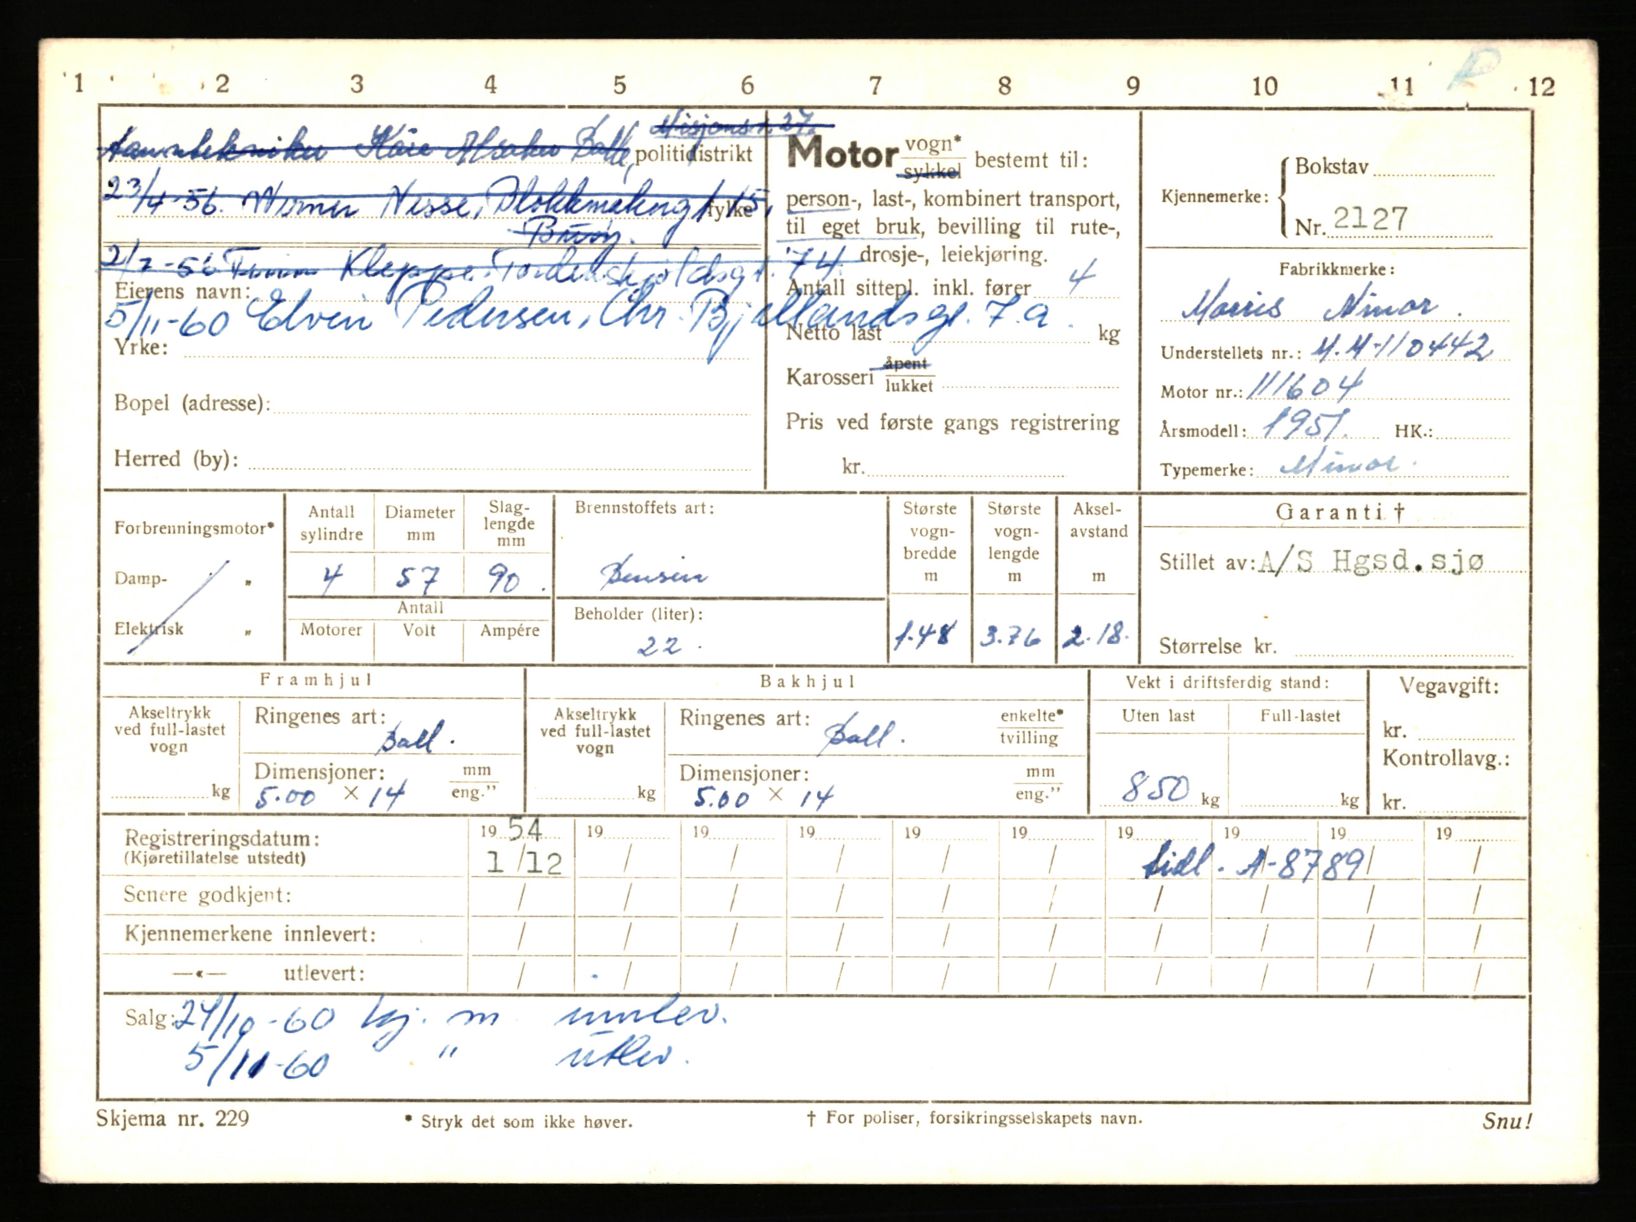 1 2 3 4 5 6 7 8 9 10 11 12
R
Misjonsv. 27.
Kåre politidistrikt
23/4-56. Werner Nesse, fylke
2/7-56 Kleppe. Tordenskjoldsgt. 74
Eierens navn:
5/11-60 Elvin Pedersen, Chr. Bjellandsgt. 7.a.
Yrke:
Bopel (adresse):
Herred (by):
Motor vogn* sykkel bestemt til:
person-, last-, kombinert transport,
til eget bruk, bevilling til rute-,
drosje-, leiekjøring.
Antall sittepl. inkl. fører 4
Netto last kg
Karosseri åpent lukket
Pris ved første gangs registrering
kr.
Kjennemerke: Bokstav
Nr. 2127
Fabrikkmerke:
Morris Minor.
Understellets nr.: M.M-110442
Motor nr.: 111604
Årsmodell: 1951. HK.:
Typemerke: Minor.
Forbrenningsmotor*
Damp- "
Elektrisk "
Antall sylindre Diameter mm Slag-lengde mm
4 57 90.
Antall
Motorer Volt Ampére
Brennstoffets art:
Bensin
Beholder (liter):
22.
Største vogn-bredde m Største vogn-lengde m Aksel-avstand m
1.48 3.76 2.18.
Garanti †
Stillet av: A/S Hgsd.sjø
Størrelse kr.
Framhjul
Akseltrykk ved full-lastet vogn
kg
Ringenes art: Ball.
Dimensjoner: mm
5.00 × 14 eng."
Bakhjul
Akseltrykk ved full-lastet vogn
kg
Ringenes art: Ball. enkelte* tvilling
Dimensjoner: mm
5.00 × 14 eng."
Vekt i driftsferdig stand:
Uten last Full-lastet
850 kg kg
Vegavgift:
kr.
Kontrollavg.:
kr.
Registreringsdatum: 19 54 19 19 19 19 19 19 19 19 19
(Kjøretillatelse utstedt) 1/12 / / / / / tidl. A-8789 / /
Senere godkjent: / / / / / / / / / /
Kjennemerkene innlevert: / / / / / / / / / /
—«— utlevert: / / / / / / / / / /
Salg: 24/10-60 kj. m. innlev.
5/11-60 " utlev.
Skjema nr. 229 * Stryk det som ikke høver. † For poliser, forsikringsselskapets navn. Snu!